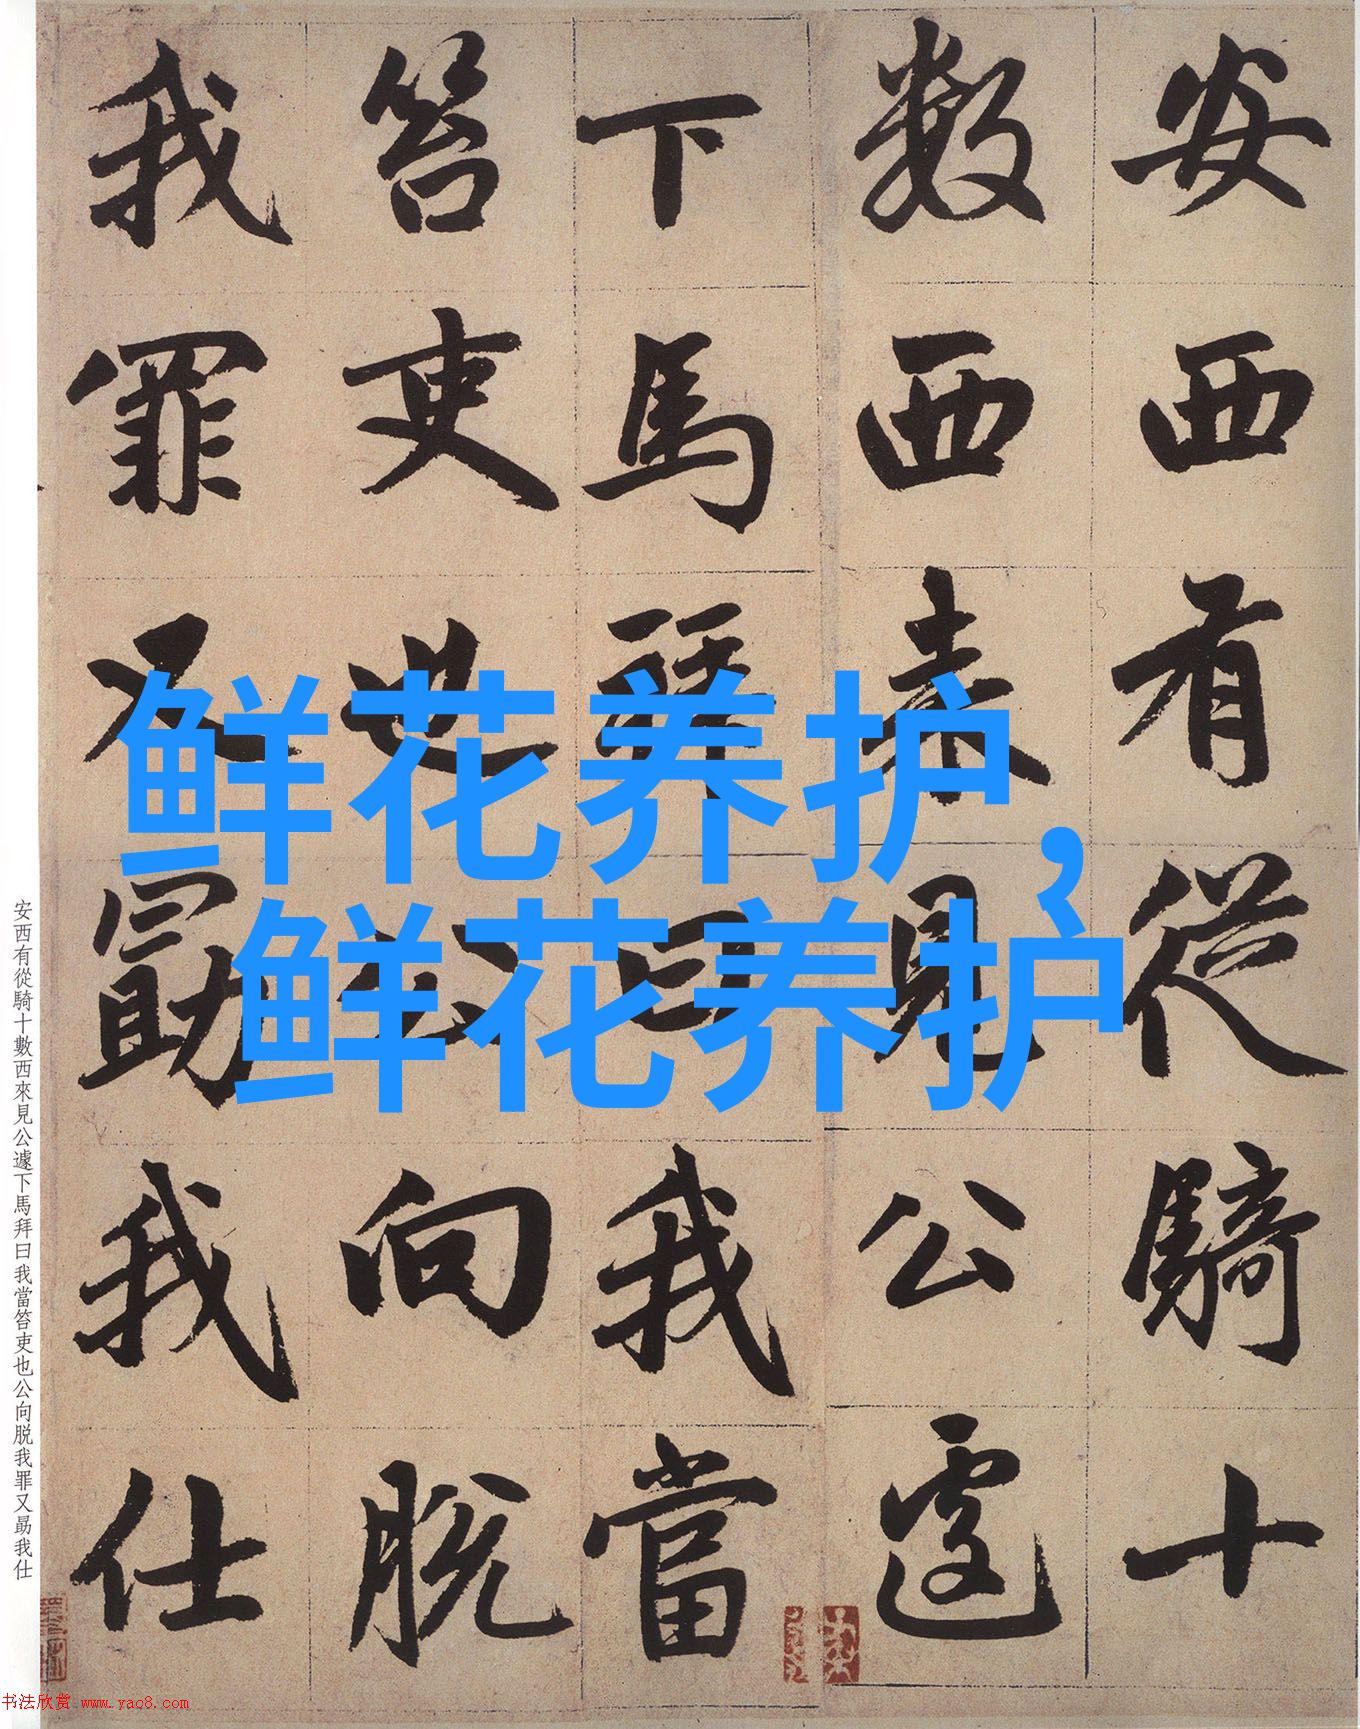 安西有從騎十
數西来見公遽
下馬拜曰我當
笞吏也公向脱
我罪又勗我仕
鲜花养护,
鲜花养护
安西有從騎十數西來見公遽下馬拜曰我當笞吏也公向脱我罪又勗我仕
书法欣赏 www.yac8.com